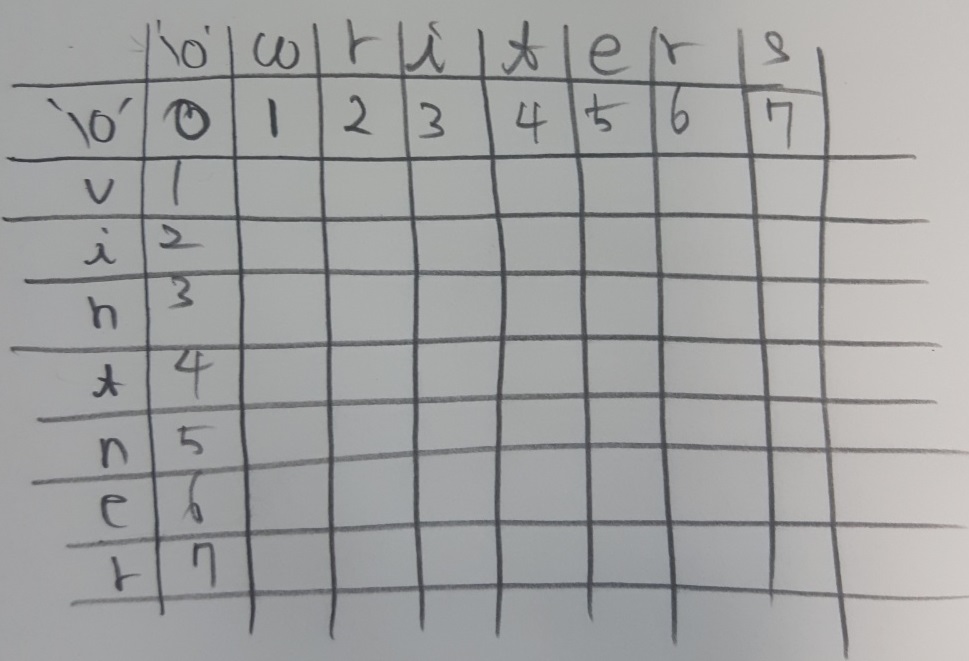 '\0' w r i t e r s
'\0' 0 1 2 3 4 5 6 7
v 1
i 2
n 3
t 4
n 5
e 6
r 7